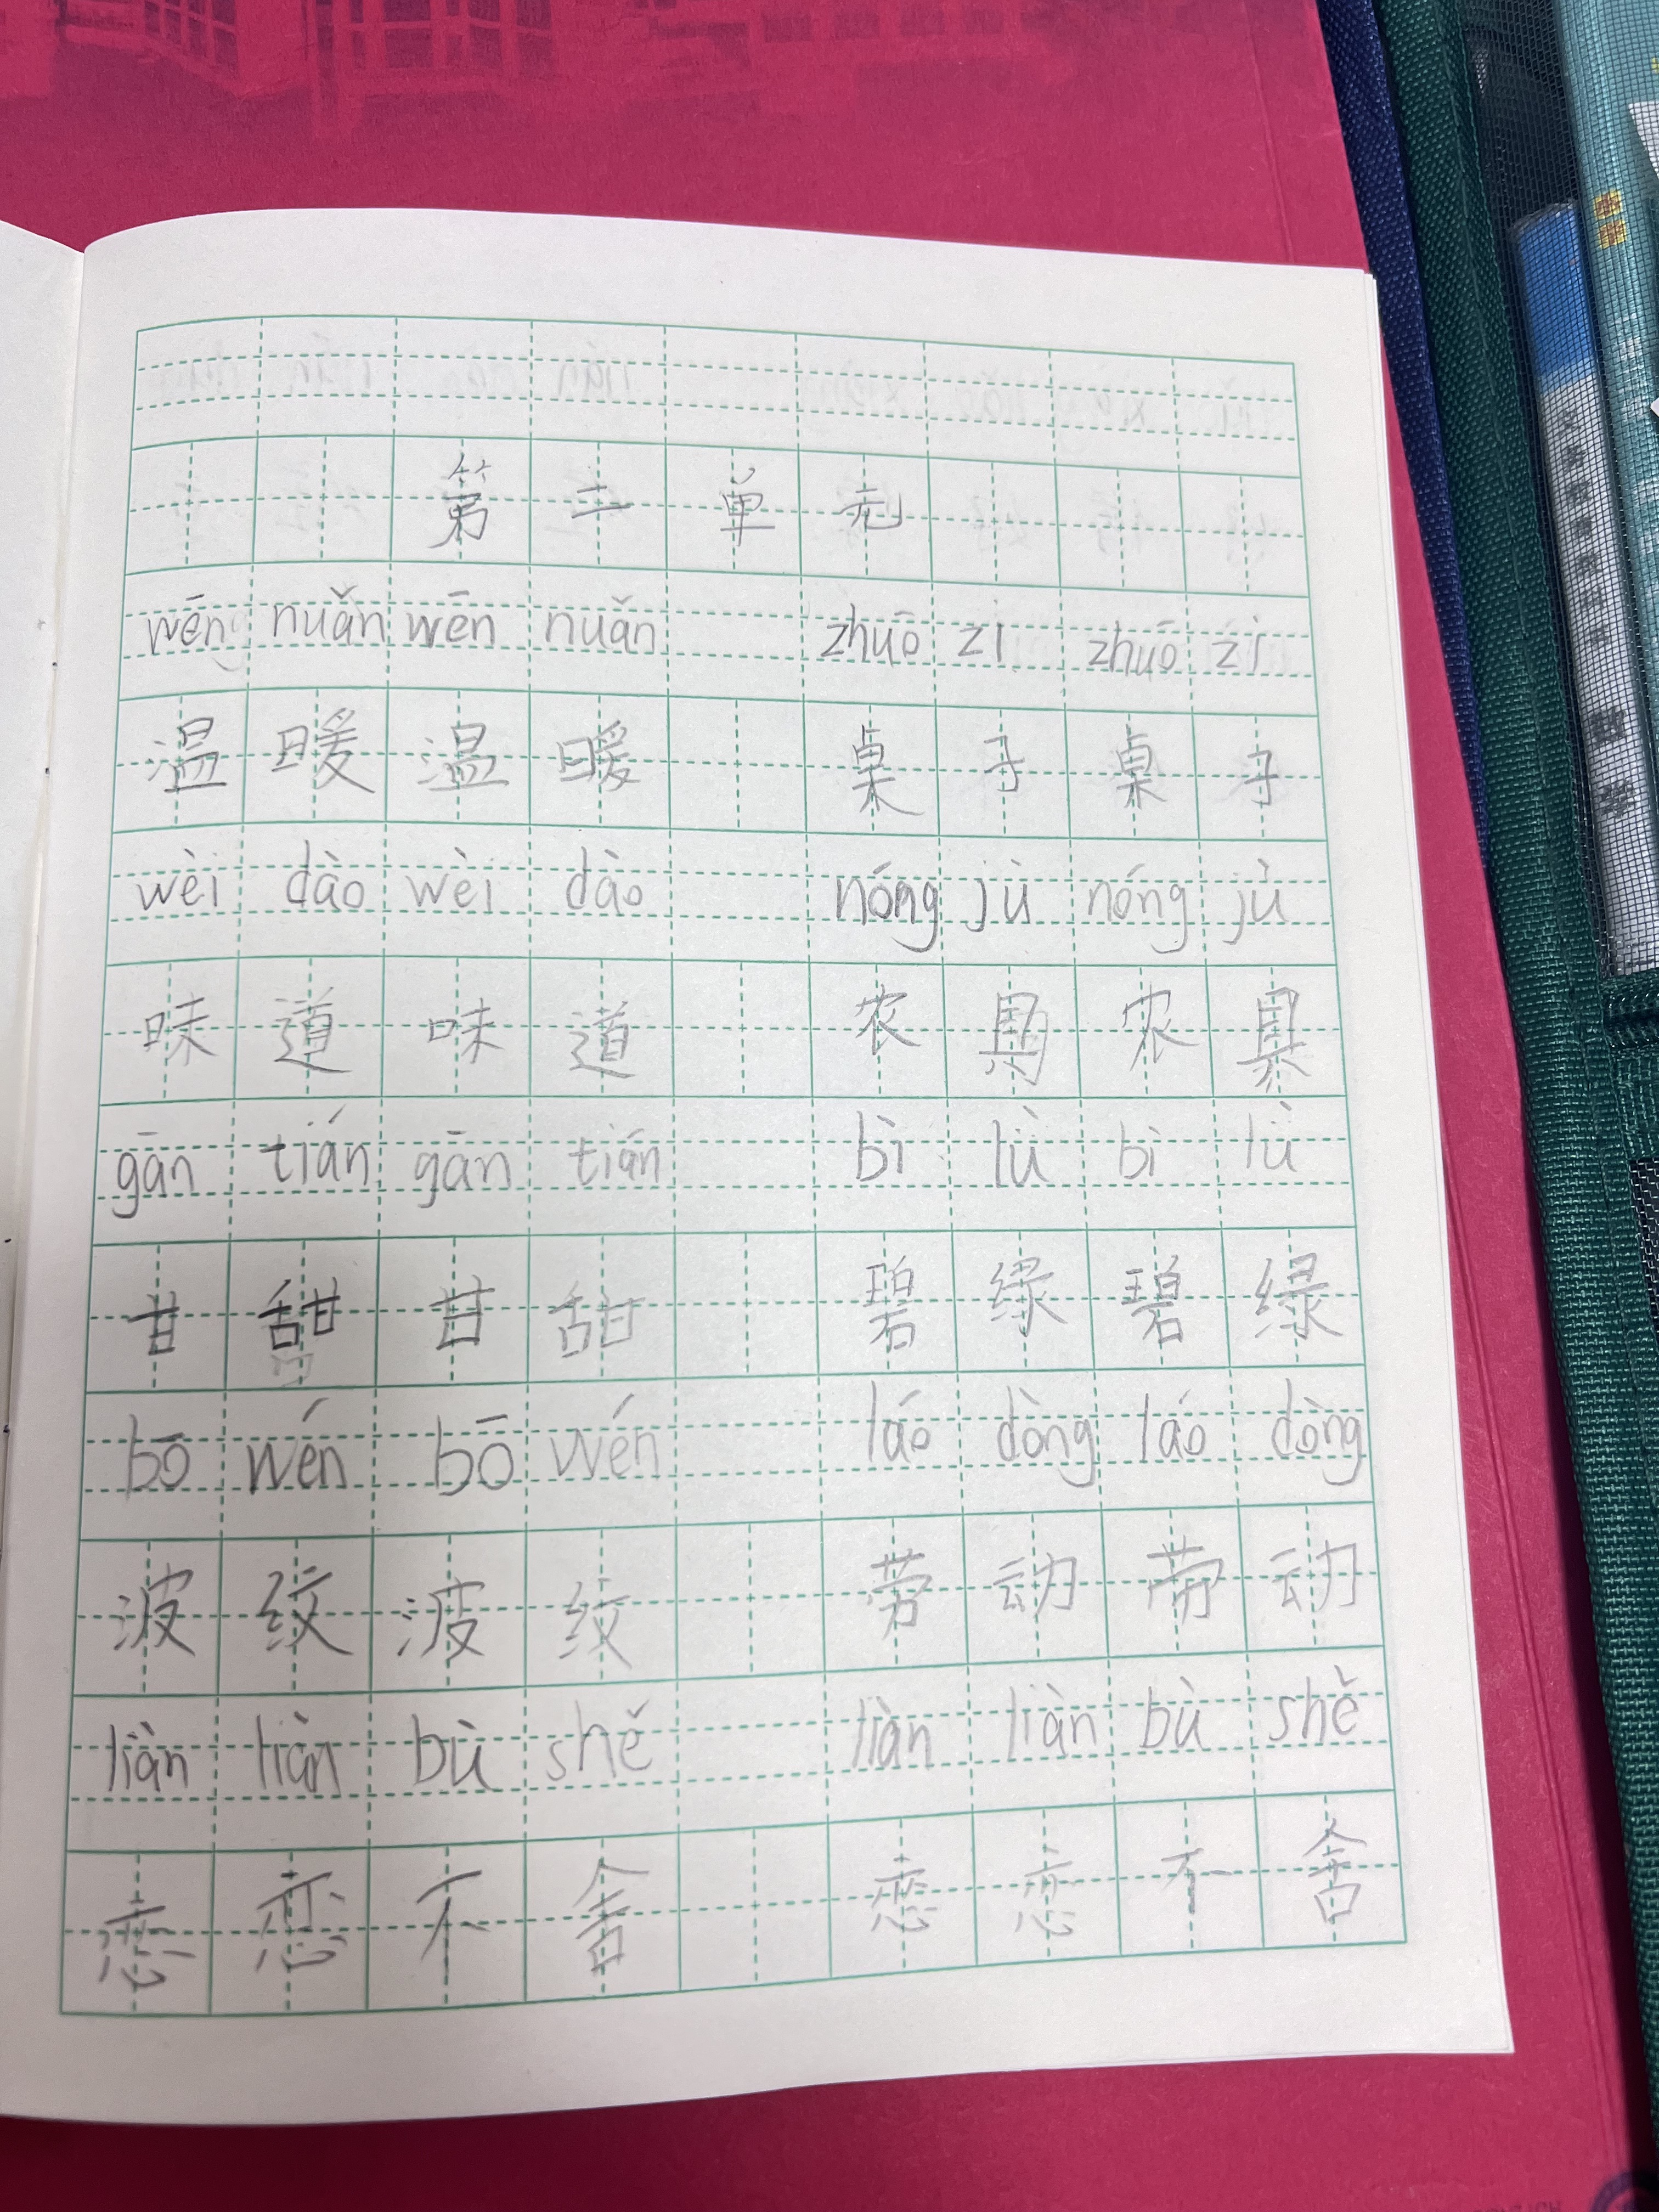 第二单元
wēn nuǎn wēn nuǎn zhuō zi zhuō zi
温暖温暖 桌子桌子
wèi dào wèi dào nóng jù nóng jù
味道味道 农具农具
gān tián gān tián bì lǜ bì lǜ
甘甜甘甜 碧绿碧绿
bō wén bō wén láo dòng láo dòng
波纹波纹 劳动劳动
liàn liàn bù shě liàn liàn bù shě
恋恋不舍 恋恋不舍